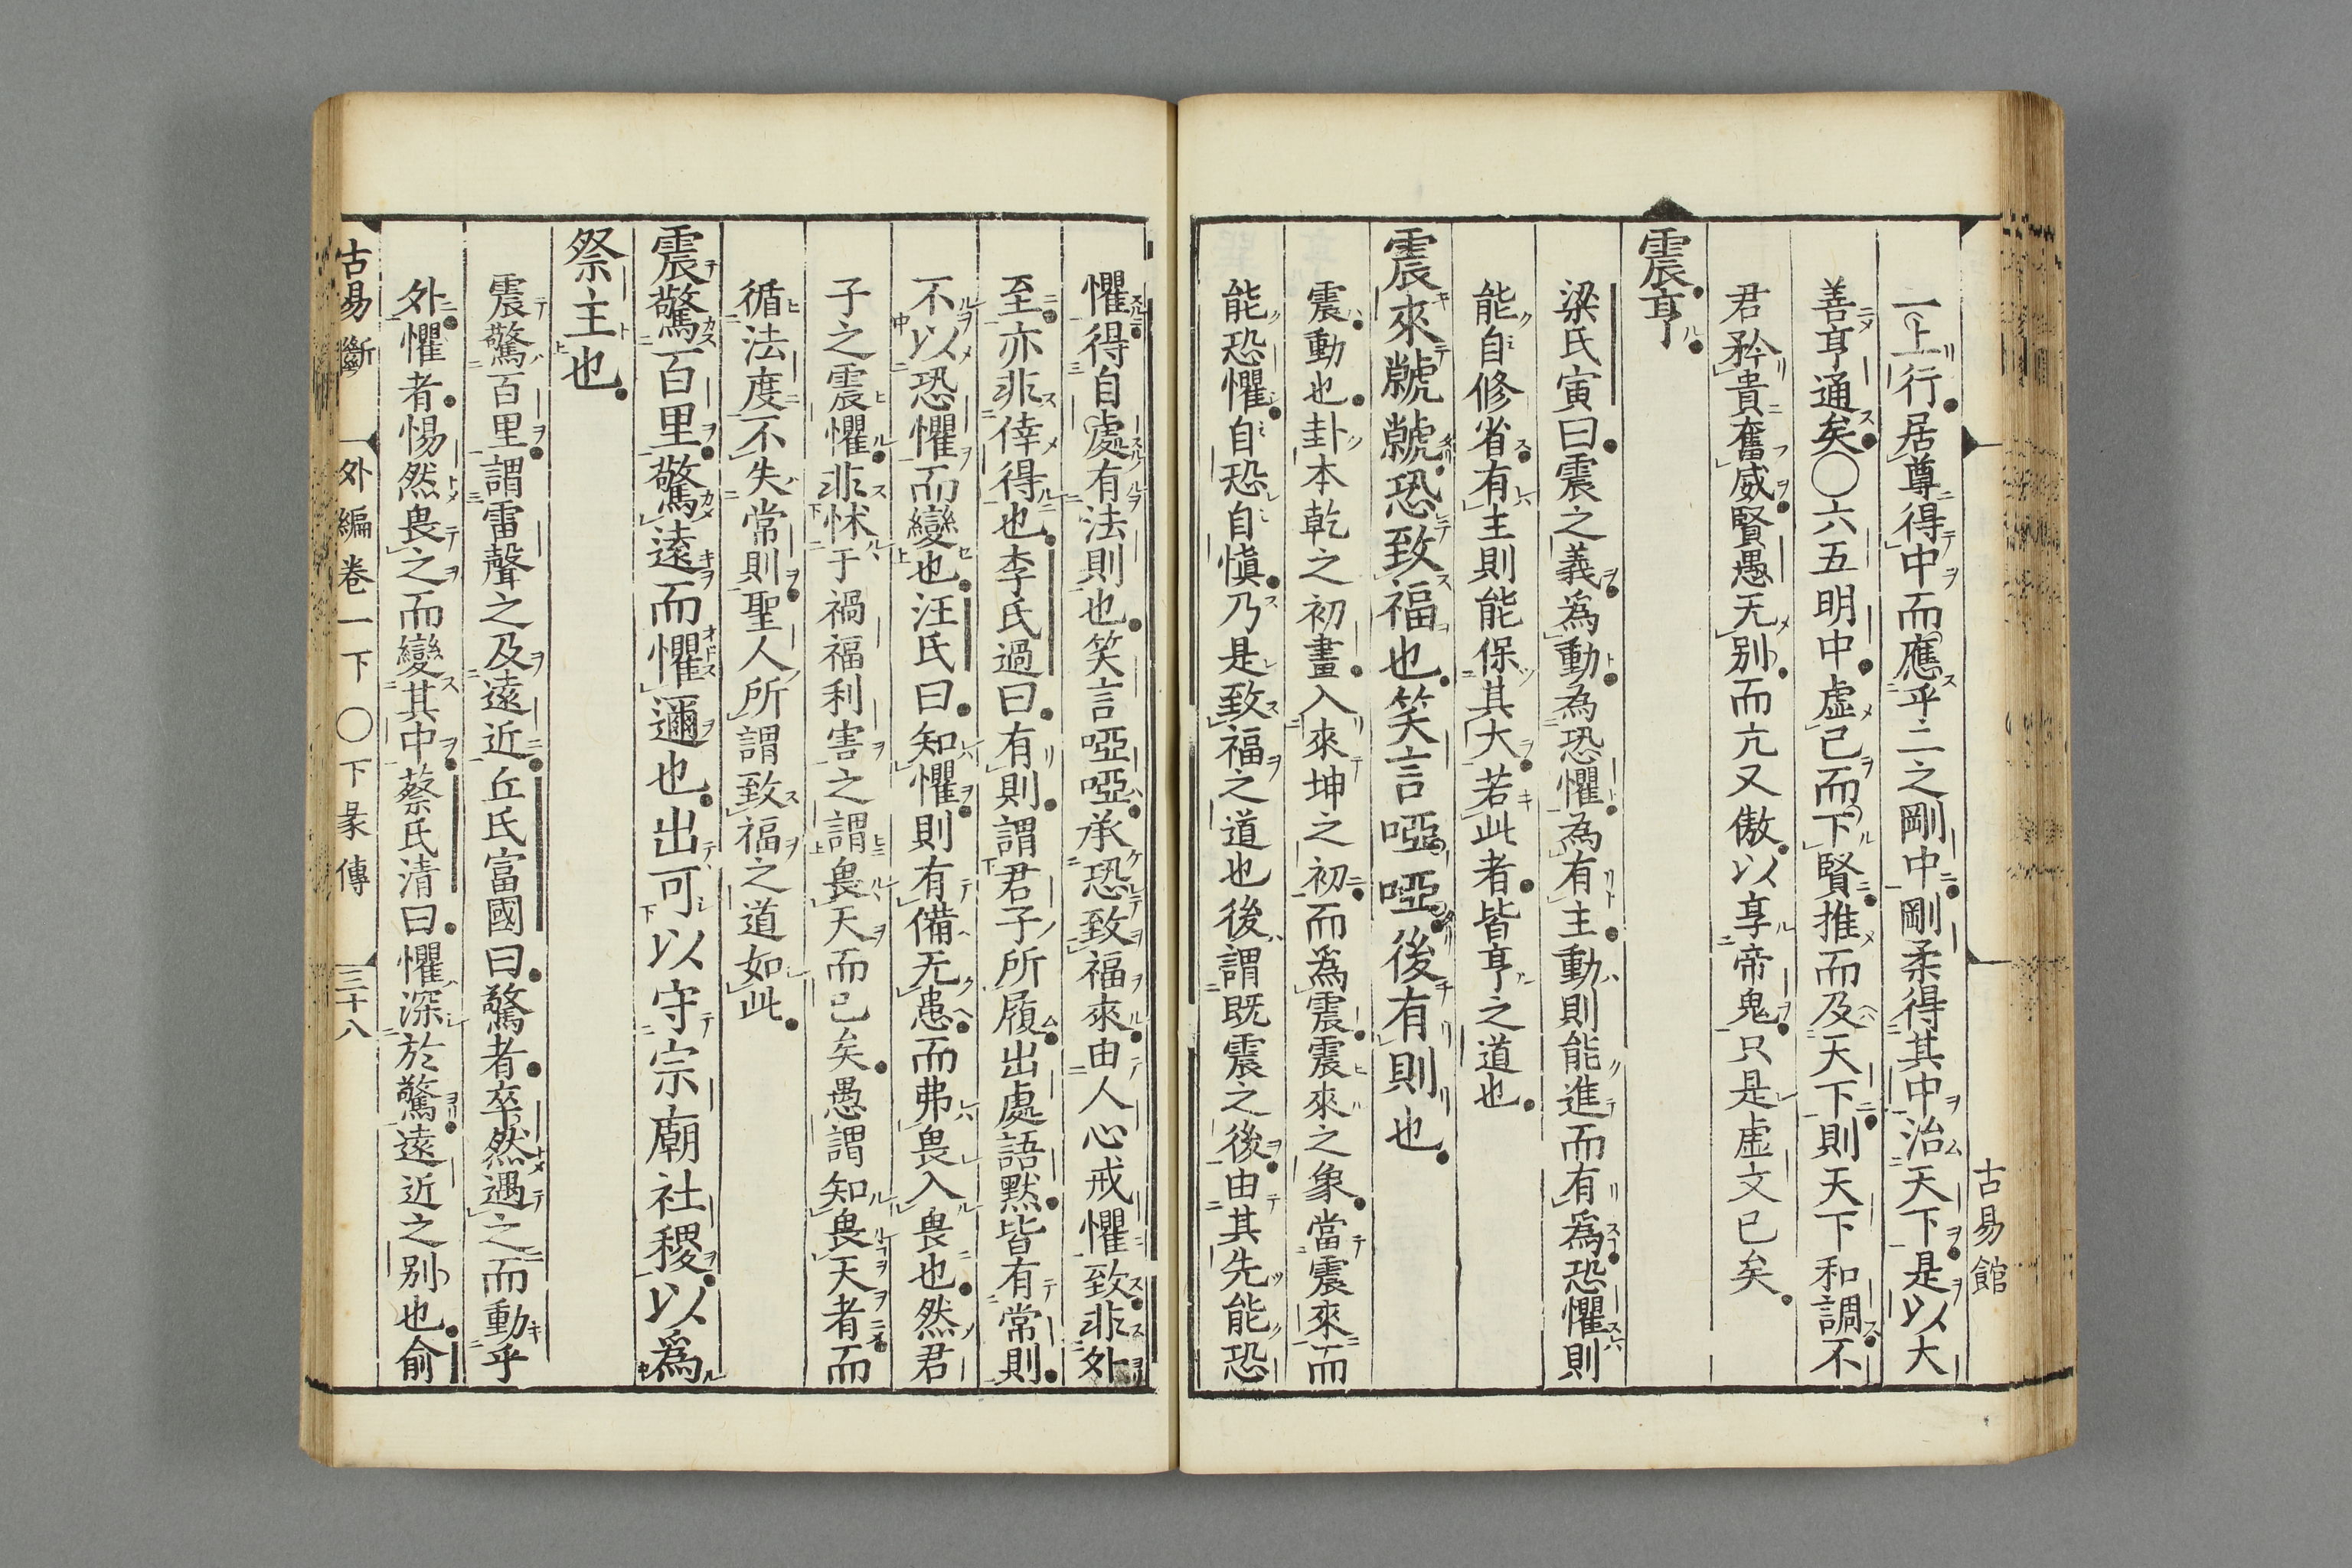 一上行居尊得中而應乎二之剛中剛柔得其中治天下是以大
善亨通矣○六五明中虛己而下賢推而及天下則天下和調不
君矜貴奮威賢愚无別而亢又傲以享帝鬼只是虛文已矣
震亨
梁氏寅曰震之義為動為恐懼為有主動則能進而有為恐懼則
能自修省有主則能保其大若此者皆亨之道也
震來虩虩恐致福也笑言啞啞後有則也
震動也卦本乾之初畫入來坤之初而為震震來之象當震來而
能恐懼自恐自愼乃是致福之道也後謂既震之後由其先能恐
古易館
懼得自處有法則也笑言啞啞承恐致福來由人心戒懼致非外
至亦非倖得也李氏過曰有則謂君子所履出處語默皆有常則
不以恐懼而變也汪氏曰知懼則有備无患而弗畏入畏也然君
子之震懼非怵于禍福利害之謂畏天而已矣愚謂知畏天者而
循法度不失常則聖人所謂致福之道如此
震驚百里驚遠而懼邇也出可以守宗廟社稷以爲
祭主也
震驚百里謂雷聲之及遠近丘氏富國曰驚者卒然遇之而動乎
外懼者惕然畏之而變其中蔡氏清曰懼深於驚遠近之別也俞
古易斷 外編卷一下 ○下彖傳 三十八